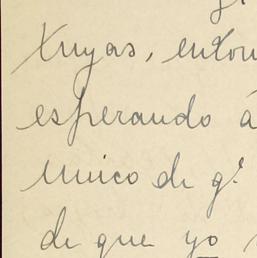 Tuyas, enton
esperando á
unico de q.e
de que yo